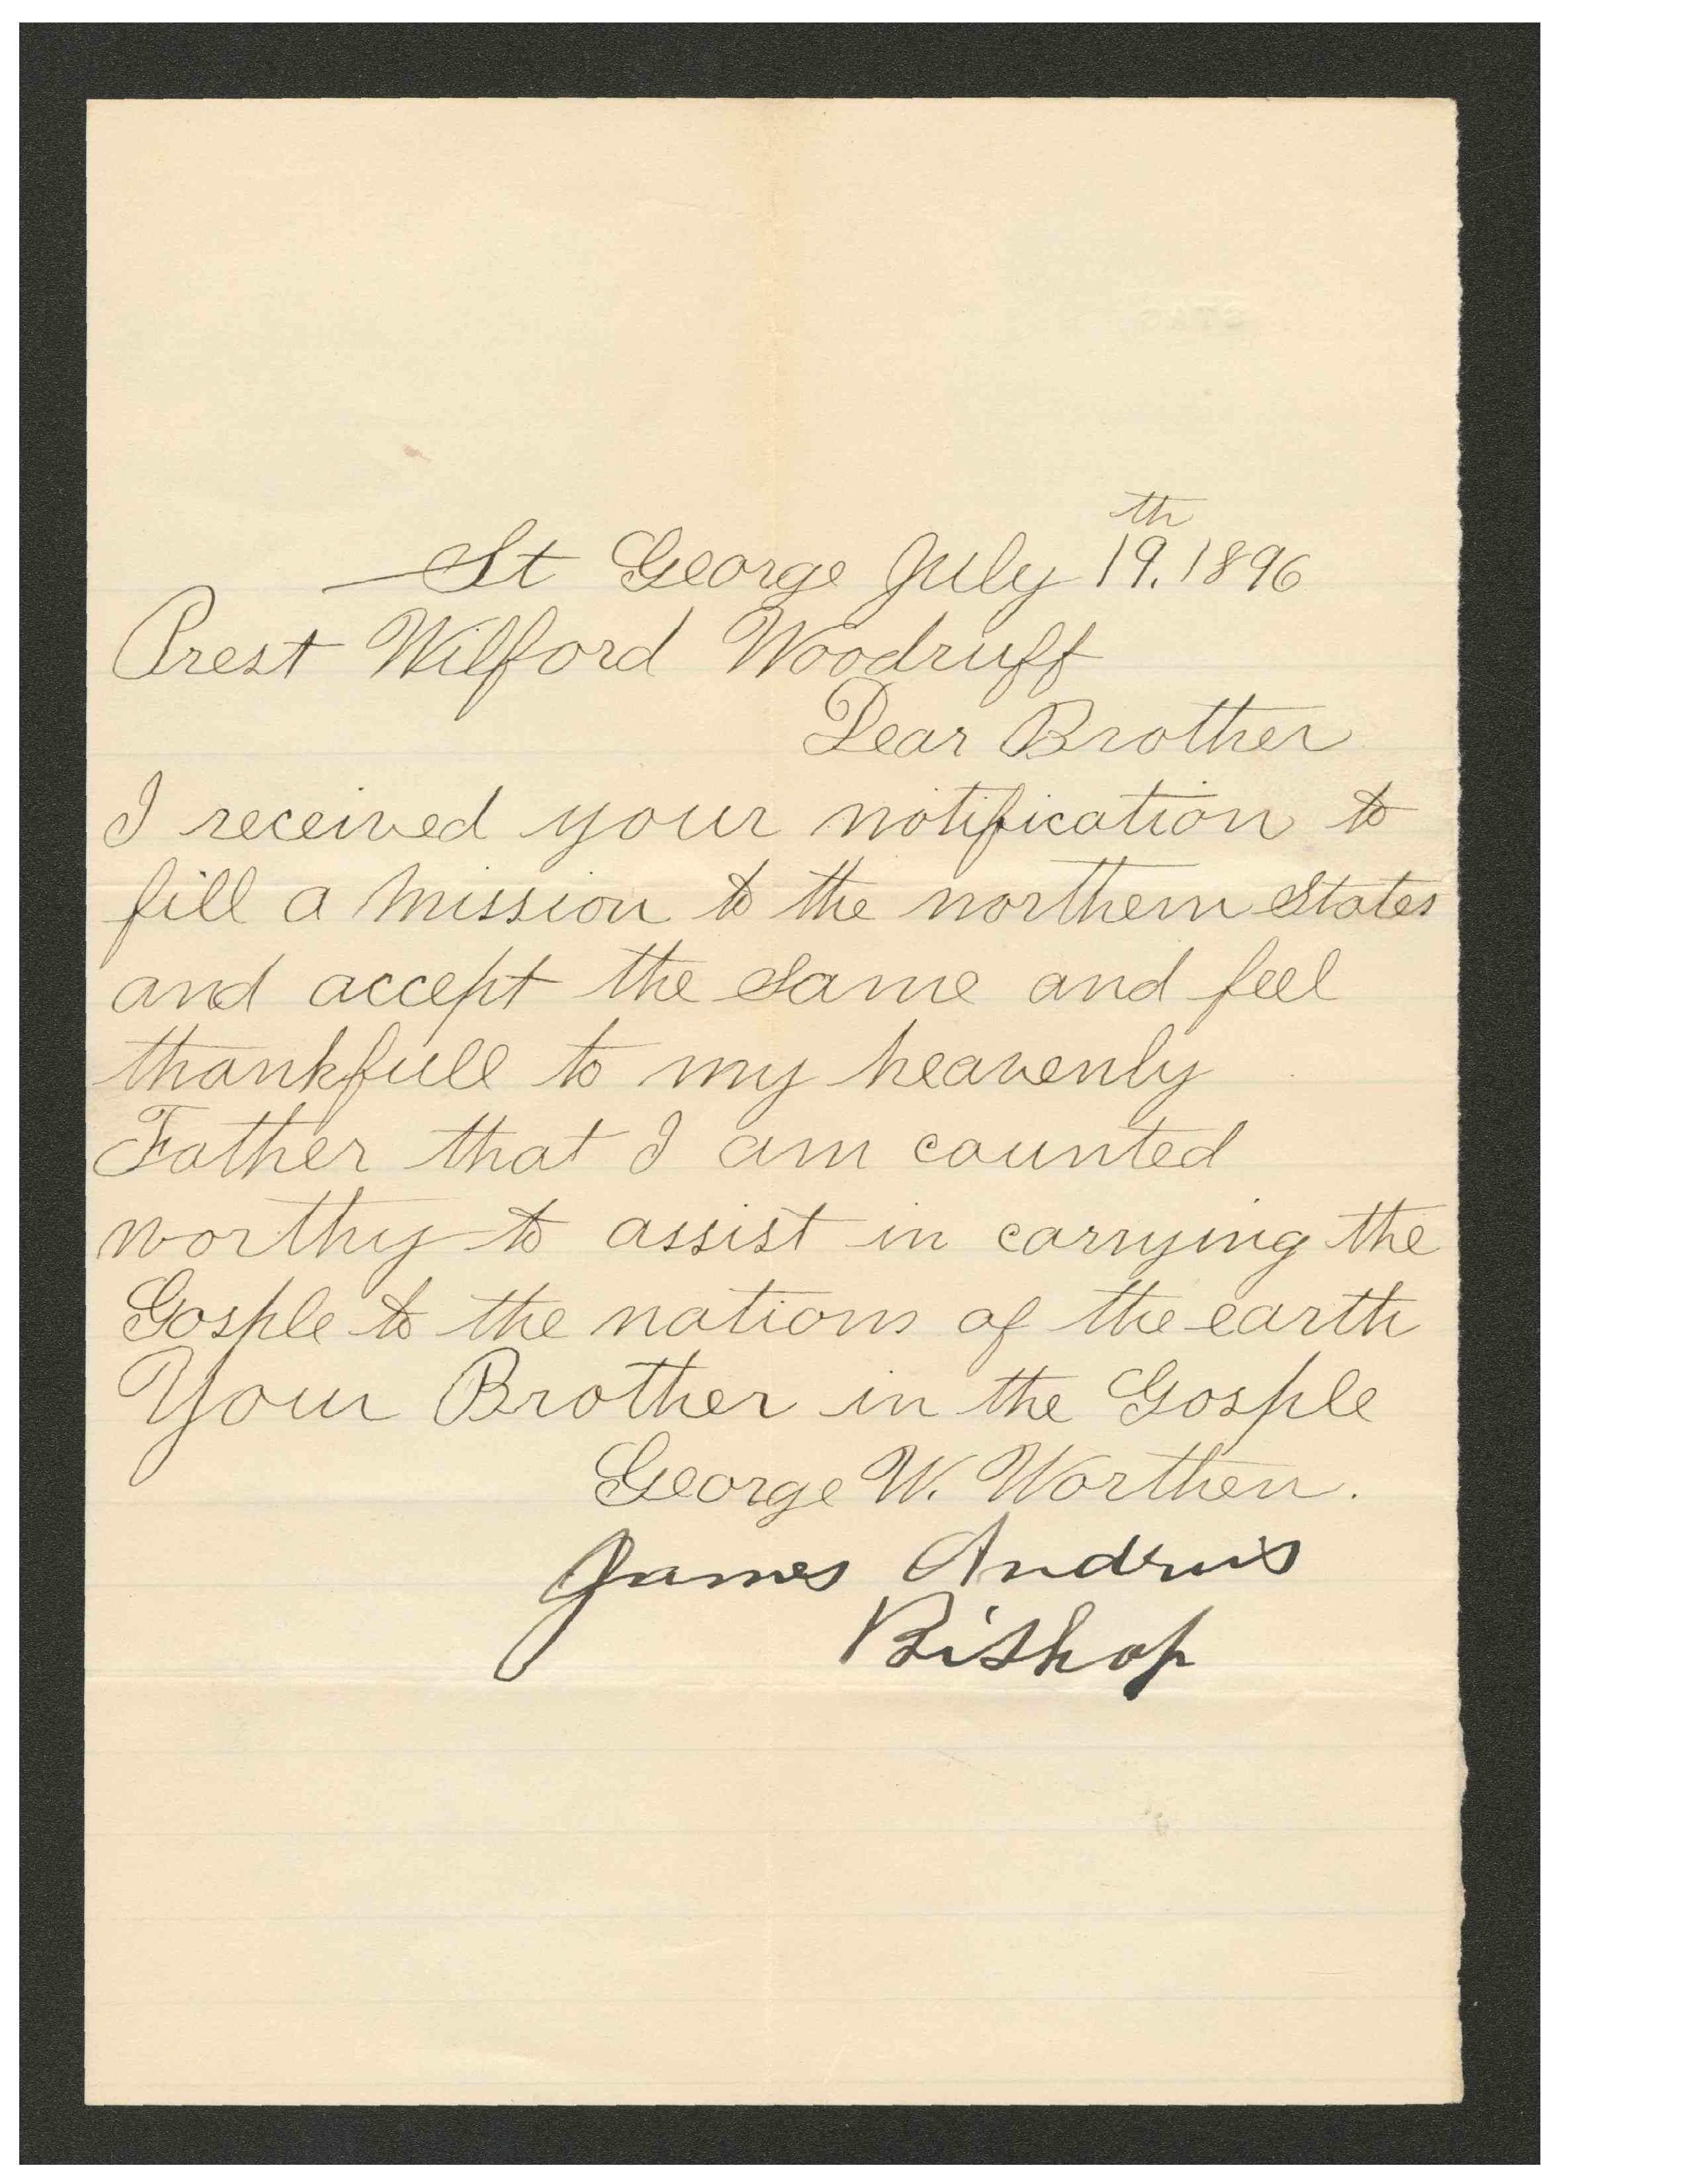 St George July 19th. 1896
Prest Wilford Woodruff
Dear Brother
I received your notification to
fill a mission to the northern States
and accept the same and feel
thankfull to my heavenly
Father that I am counted
worthy to assist in carrying the
Gosple to the nations of the earth
Your Brother in the Gosple
George W. Worthen.
James Andrus
Bishop